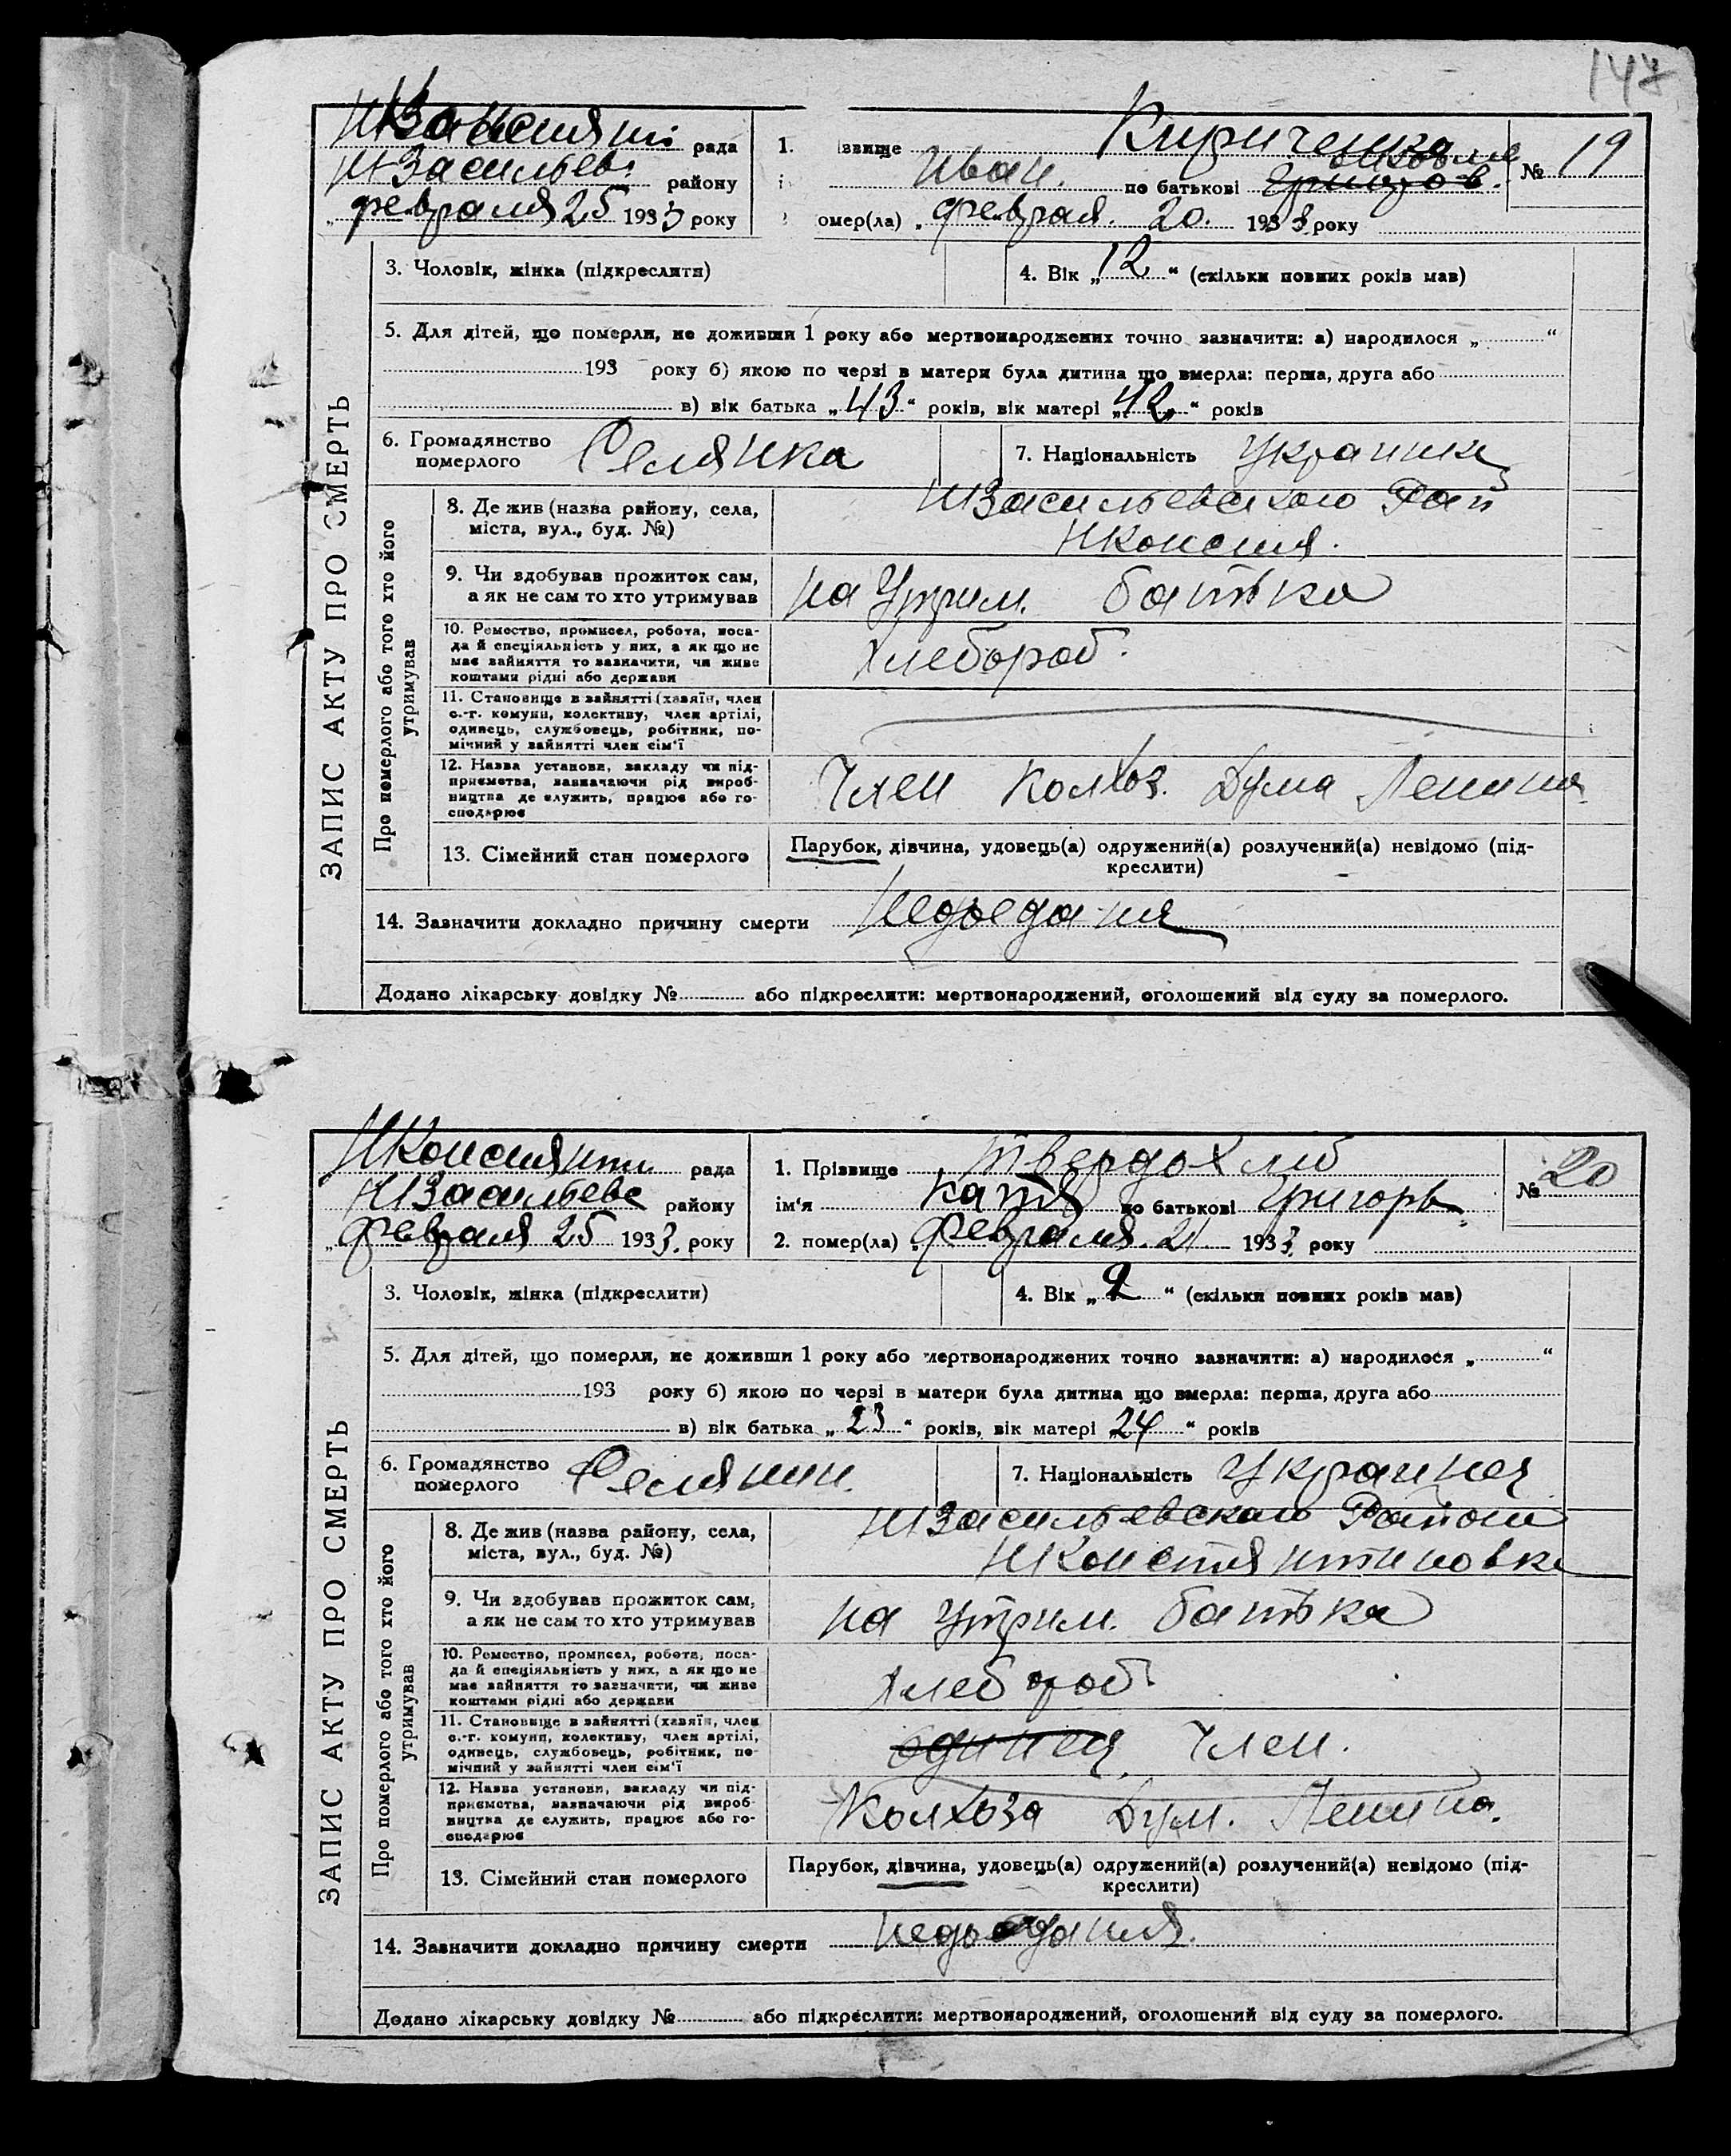 147
рада 1. ізвище Кириченко № 19
НЗасильевс району Иван. по батькові Григоров.
„ февраля 25 1933 року омер(ла) „ Феврал. 20. 1933 року
3. Чоловік, жінка (підкреслити) 4. Вік „ 12 “ (скільки повних років мав)
5. Для дітей, що померли, не доживши 1 року або мертвонароджених точно зазначити: а) народилося „ “
193 року б) якою по черзі в матери була дитина що вмерла: перша, друга або
в) вік батька „ 43 “ років, вік матері „ 42 “ років
6. Громадянство померлого Селянка 7. Національність
ЗАПИС АКТУ ПРО СМЕРТЬ
Про померлого або того хто його утримував
8. Де жив (назва району, села, НЗасильевского Рай
міста, вул., буд. №) НКонстя.
9. Чи здобував прожиток сам, на Утрим. батька
а як не сам то хто утримував
10. Ремество, промисел, робота, поса-
да й спеціяльність у них, а як що не Хлебороб.
має зайняття то зазначити, чи живе
коштами рідні або держави
11. Становище в зайнятті (хазяїн, член
с.-г. комуни, колективу, член артілі,
одинець, службовець, робітник, по-
мічний у зайнятті член сім'ї
12. Назва установи, закладу чи під-
приємства, зазначаючи рід вироб- Член Колхоз. Дума Ленина
ництва де служить, працює або го-
сподарює
13. Сімейний стан померлого Парубок, дівчина, удовець(а) одружений(а) розлучений(а) невідомо (під-
креслити)
14. Зазначити докладно причину смерти Недоедания
Додано лікарську довідку № або підкреслити: мертвонароджений, оголошений від суду за померлого.
НКонстянти рада 1. Прізвище твердохлиб № 20
НЗасильевс району ім'я Катя по батькові Григорь
„ Февраля 25 1933. року 2. помер(ла) „ Февраля. 21. 1933 року
3. Чоловік, жінка (підкреслити) 4. Вік „ 2 “ (скільки повних років мав)
5. Для дітей, що померли, не доживши 1 року або мертвонароджених точно зазначити: а) народилося „ “
193 року б) якою по черзі в матери була дитина що вмерла: перша, друга або
в) вік батька „ 23 “ років, вік матері „ 24 “ років
6. Громадянство померлого Селянин. 7. Національність Украинея
ЗАПИС АКТУ ПРО СМЕРТЬ
Про померлого або того хто його утримував
8. Де жив (назва району, села, НЗасильевскаго Района
міста, вул., буд. №) НКонстянтиновка
9. Чи здобував прожиток сам, на Утрим. батька
а як не сам то хто утримував
10. Ремество, промисел, робота, поса-
да й спеціяльність у них, а як що не Хлебороб.
має зайняття то зазначити, чи живе
коштами рідні або держави
11. Становище в зайнятті (хазяїн, член
с.-г. комуни, колективу, член артілі, Член.
одинець, службовець, робітник, по-
мічний у зайнятті член сім'ї
12. Назва установи, закладу чи під-
приємства, зазначаючи рід вироб- Колхоза Дум. Ленина.
ництва де служить, працює або го-
сподарює
13. Сімейний стан померлого Парубок, дівчина, удовець(а) одружений(а) розлучений(а) невідомо (під-
креслити)
14. Зазначити докладно причину смерти недоедания.
Додано лікарську довідку № або підкреслити: мертвонароджений, оголошений від суду за померлого.